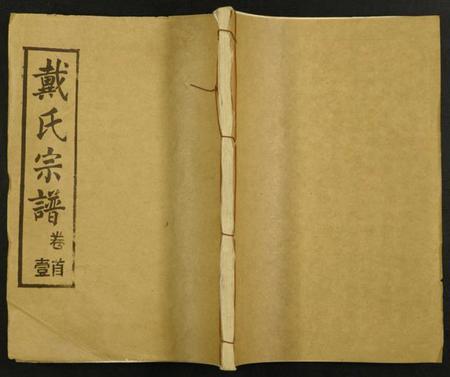 戴氏宗譜卷首壹